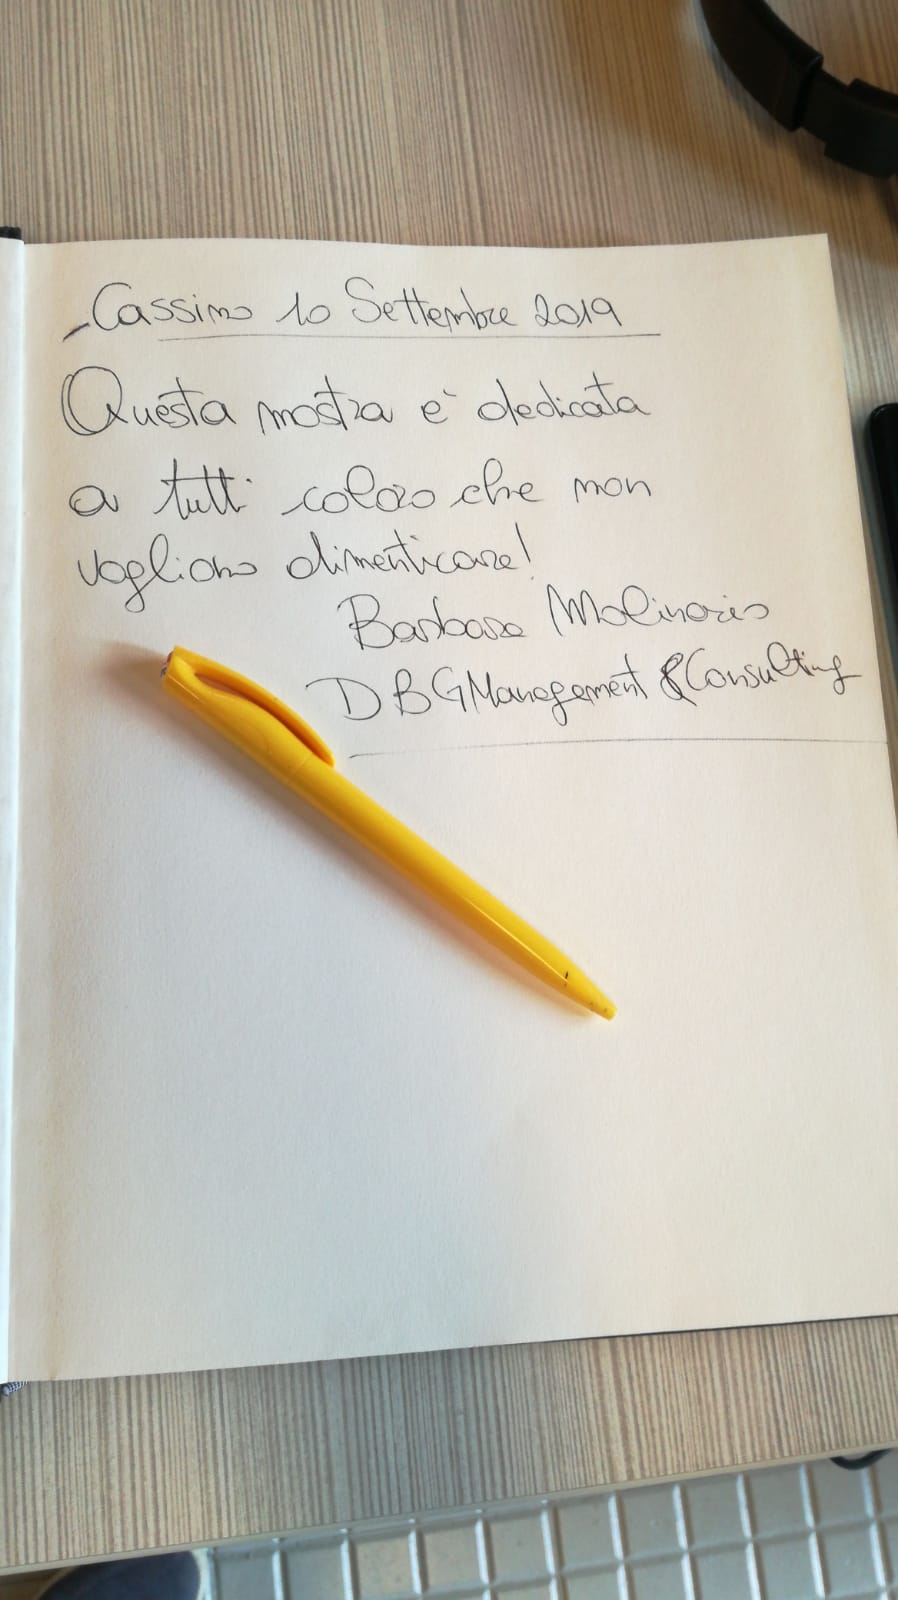 Cassino 10 Settembre 2019
Questa mostra è dedicata
a tutti coloro che non
vogliono dimenticare!
Barbara Molinaris
DBGManagement &Consulting